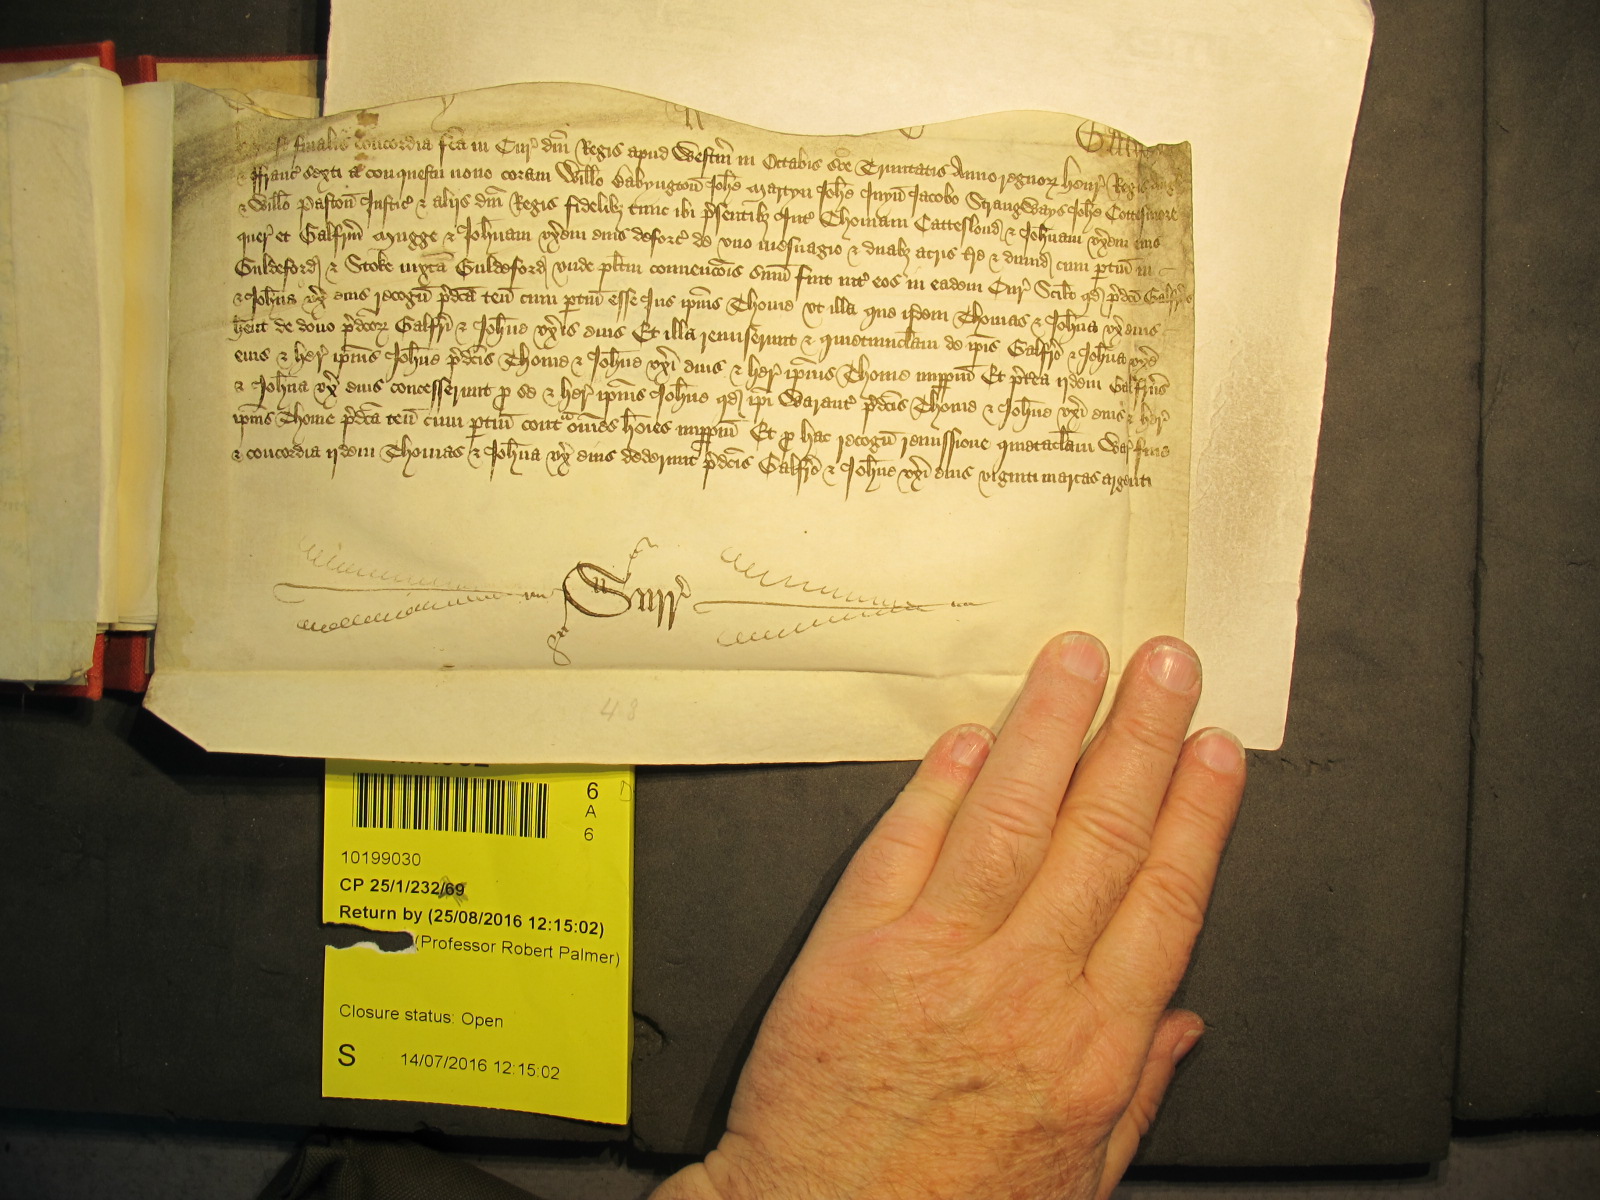 finalis concordia fc̄a in Cur̉ dn̄i Regis apud Westm̄ in Octabis sc̄e Trinitatis Anno regnoꝝ Henr̉ Regis Angl̉
& ffranc̉ sexti a conquestu nono coram Will̄o Babyngton̄ Joh̄e Martyn Joh̄e Juyn̄ Jacobo Strangways Joh̄e Cottesmore
& Will̄o Paston̄ Justic̉ & alijs dn̄i Regis fidelibȝ tunc ibi p̄sentibȝ Int̉ Thomam Catteslond & Joh̄nam vx̄em eius
quer̉ et Galfr̄m Mugge & Joh̄nam vx̄em eius deforc̉ de vno mesuagio & duabȝ acris t̄re & dimid̉ cum ꝑtin̄ in
Guldeford̉ & Stoke iuxta Guldeford̉ vnde pl̄itm conuenc̄ois sum̄ fuit int̉ eos in eadem Cur̉ Scil̄t qd̉ p̄dc̄i Galfr̄us
& Joh̄na vx̉ eius recogn̄ p̄dc̄a ten̄ cum ꝑtin̄ esse Jus ip̄ius Thome vt illa que ijdem Thomas & Joh̄na vx̉ eius
h̄ent de dono p̄dc̄oꝝ Galfr̄i & Joh̄ne vx̄is eius Et illa remiserunt & quietumclam̄ de ip̄is Galfr̄o & Joh̄na vx̄e
eius & her̉ ip̄ius Joh̄ne p̄dc̄is Thome & Joh̄ne vx̄i eius & her̉ ip̄ius Thome imꝑpm̄ Et p̄t̉ea ijdem Galfr̄us
& Joh̄na vx̉ eius concesserunt ꝓ se & her̉ ip̄ius Joh̄ne qd̉ ip̄i Warant̉ p̄dc̄is Thome & Joh̄ne vx̄i eius & her̉
ip̄ius Thome p̄dc̄a ten̄ cum ꝑtin̄ contᵃ om̄es hōies imꝑpm̄ Et ꝓ hac recogn̄ remissione quietaclam̄ War̉ fine
& concordia ijdem Thomas & Joh̄na vx̉ eius dederunt p̄dc̄is Galfr̄o & Joh̄ne vx̄i eius viginti marcas argenti
Surr̉
48
6
A
6
10199030
CP 25/1/232/69
Return by (25/08/2016 12:15:02)
(Professor Robert Palmer)
Closure status: Open
S 14/07/2016 12:15:02